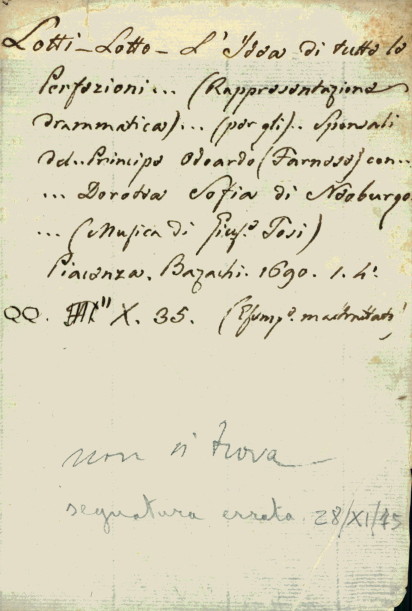 Lotti-Lotto- L'Idea di tutte le
Perfezioni... (Rappresentazione
drammatica)... (per gli).. Sponsali
del.. Principe Odoardo (Farnese) con..
... Dorotea Sofia di Neoburgo
... (Musica di Giuse. Tosi)
Piacenza. Bazachi. 1690. 1. 4°
QQ. X. 35. (Esemp.e
non si trova
segnatura errata 28/XI/45